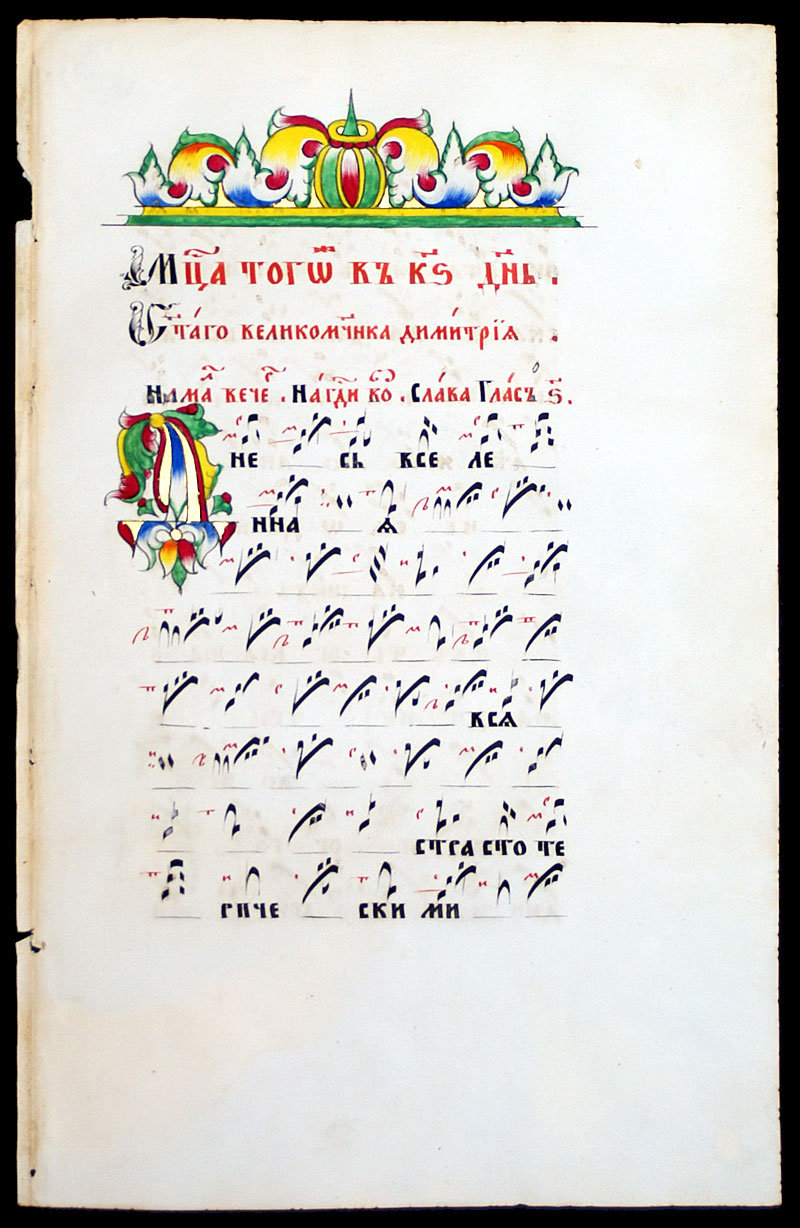 Мц҃а тогѡ въ к҃ѕ дн҃ь.
Ст҃а́го великомч҃нка дими́трїѧ.
На ма́ вече. На гдⷭ҇и во. Сла́ва Гла́съ ѕ҃.
Д не сь все ле
нна ѧ
всѧ
стра сто те
рпче ски ми